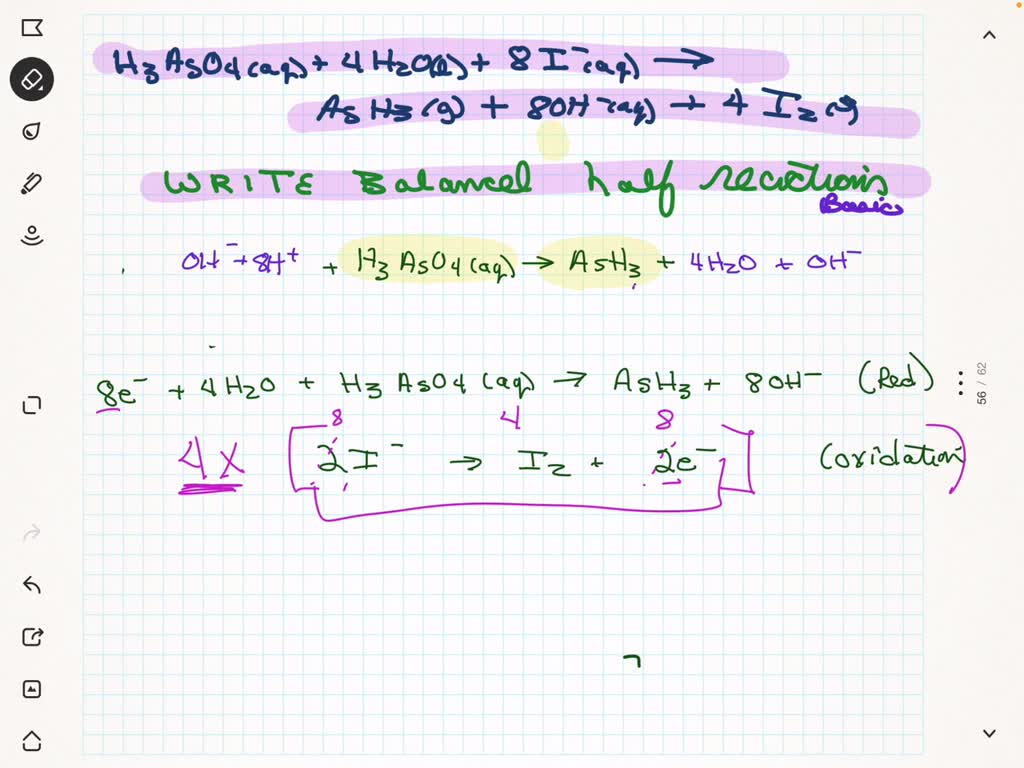 H₃AsO₄(aq) + 4H₂O(l) + 8I⁻(aq) →
AsH₃(g) + 8OH⁻(aq) + 4I₂(s)
WRITE Balanced half reactions
Basic
OH⁻ + 8H⁺ + H₃AsO₄(aq) → AsH₃ + 4H₂O + OH⁻
8e⁻ + 4H₂O + H₃AsO₄(aq) → AsH₃ + 8OH⁻ (Red)
8 4 8
4X [2I⁻ → I₂ + 2e⁻] (oxidation)
56 / 62